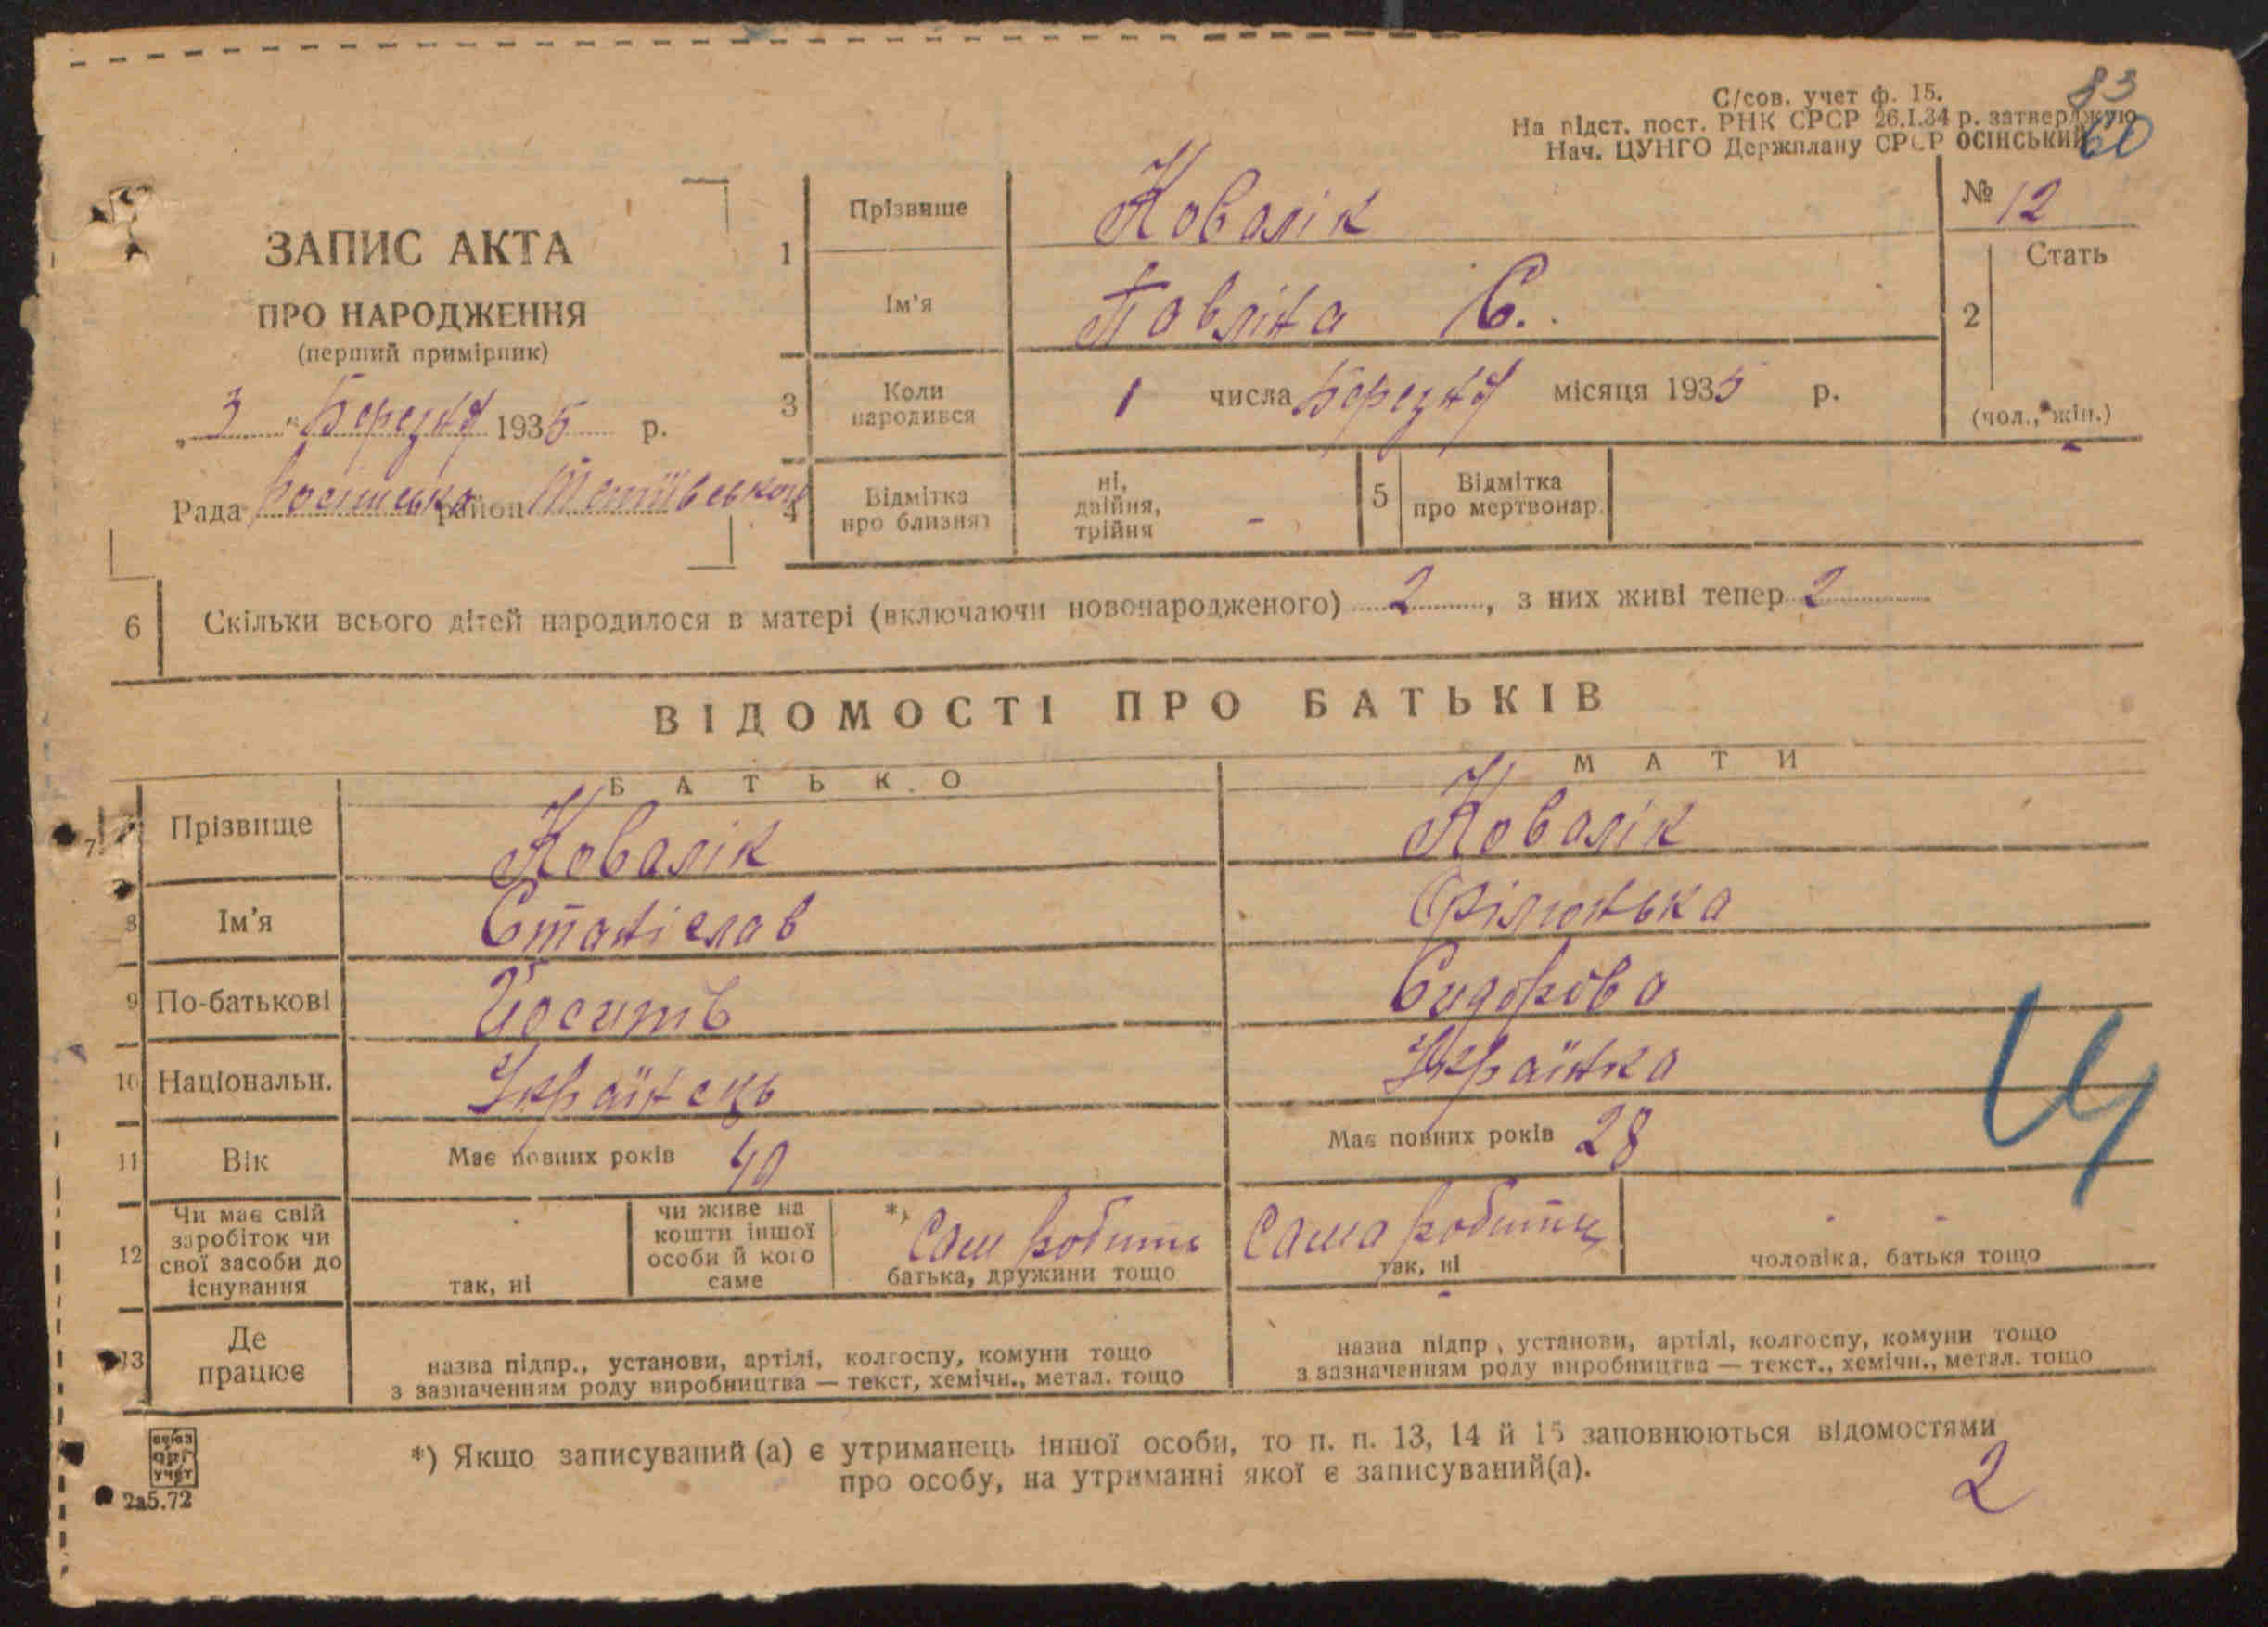 С/сов. учет ф. 15.
На підст. пост. РНК СРСР 26.I.34 р. затверджую
Нач. ЦУНГО Держплану СРСР ОСІНСЬКИЙ
83
60
ЗАПИС АКТА
ПРО НАРОДЖЕННЯ
(перший примірник)
„3" Березня 1935 р.
Рада Росішська район Тетіївськой
1
Прізвище
Ковалік
Ім'я
Павліна С.
№ 12
2
Стать
(чол., жін.)
3
Коли народився
1 числа Березня місяця 1935 р.
4
Відмітка про близнят
ні, двійня, трійня -
5
Відмітка про мертвонар.
6
Скільки всього дітей народилося в матері (включаючи новонародженого) 2, з них живі тепер 2
ВІДОМОСТІ ПРО БАТЬКІВ
БАТЬКО
МАТИ
7
Прізвище
Ковалік
Ковалік
8
Ім'я
Станіслав
Філюнька
9
По-батькові
Йосипів
Сидорова
10
Національн.
Українець
Українка
11
Вік
Має повних років 40
Має повних років 28
12
Чи має свій заробіток чи свої засоби до існування
так, ні
чи живе на кошти іншої особи й кого саме
*) Сам робить
батька, дружини тощо
Сама робить
так, ні
чоловіка, батька тощо
13
Де працює
назва підпр., установи, артілі, колгоспу, комуни тощо
з зазначенням роду виробництва — текст, хемічн., метал. тощо
назва підпр., установи, артілі, колгоспу, комуни тощо
з зазначенням роду виробництва — текст., хемічн., метал. тощо
*) Якщо записуваний (а) є утриманець іншої особи, то п. п. 13, 14 й 15 заповнюються відомостями
про особу, на утриманні якої є записуваний(а).
союз
орг
учет
2а5.72
2